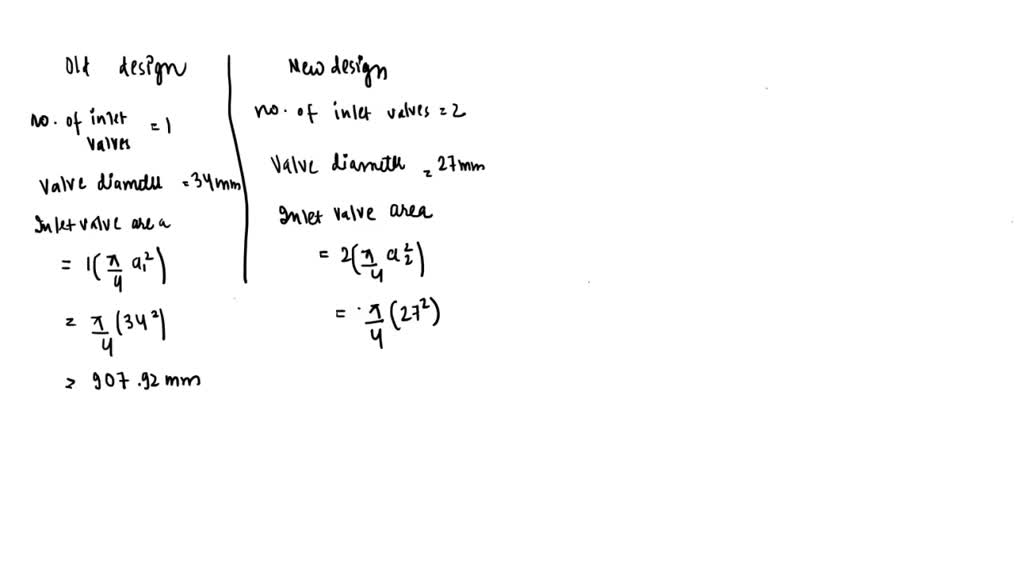 Old design
no. of inlet
valves = 1
Valve diameter = 34mm
Inlet valve area
= 1(π/4 d₁²)
= π/4 (34²)
= 907.92 mm
New design
no. of inlet valves = 2
Valve diameter = 27mm
Inlet valve area
= 2(π/4 d₂²)
= π/4 (27²)